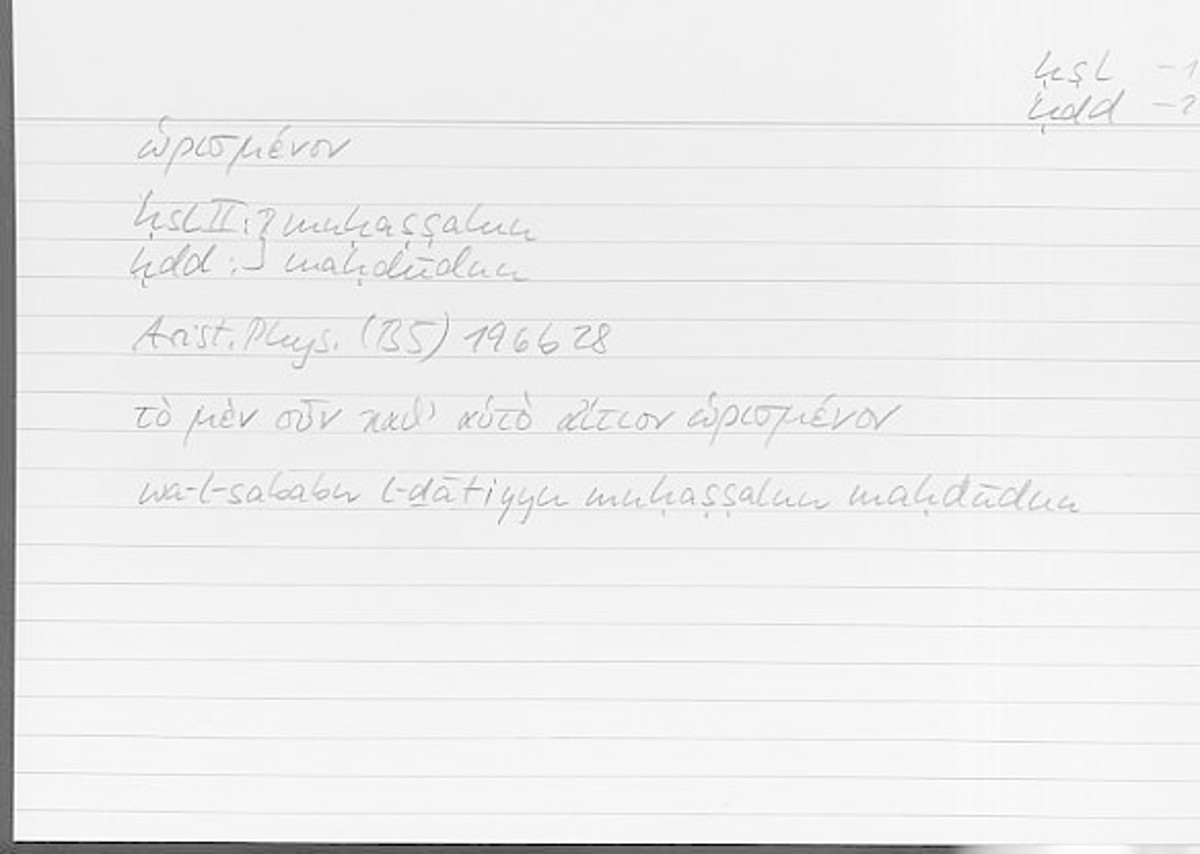 ḥṣl -1
ḥdd -2
ὡρισμένον
ḥṣl II :} muḥaṣṣalun
ḥdd :} maḥdūdun
Arist. Phys. (B5) 196b28
τὸ μὲν οὖν καθ' αὑτὸ αἴτιον ὡρισμένον
wa-l-sababu l-ḏātiyyu muḥaṣṣalun maḥdūdun